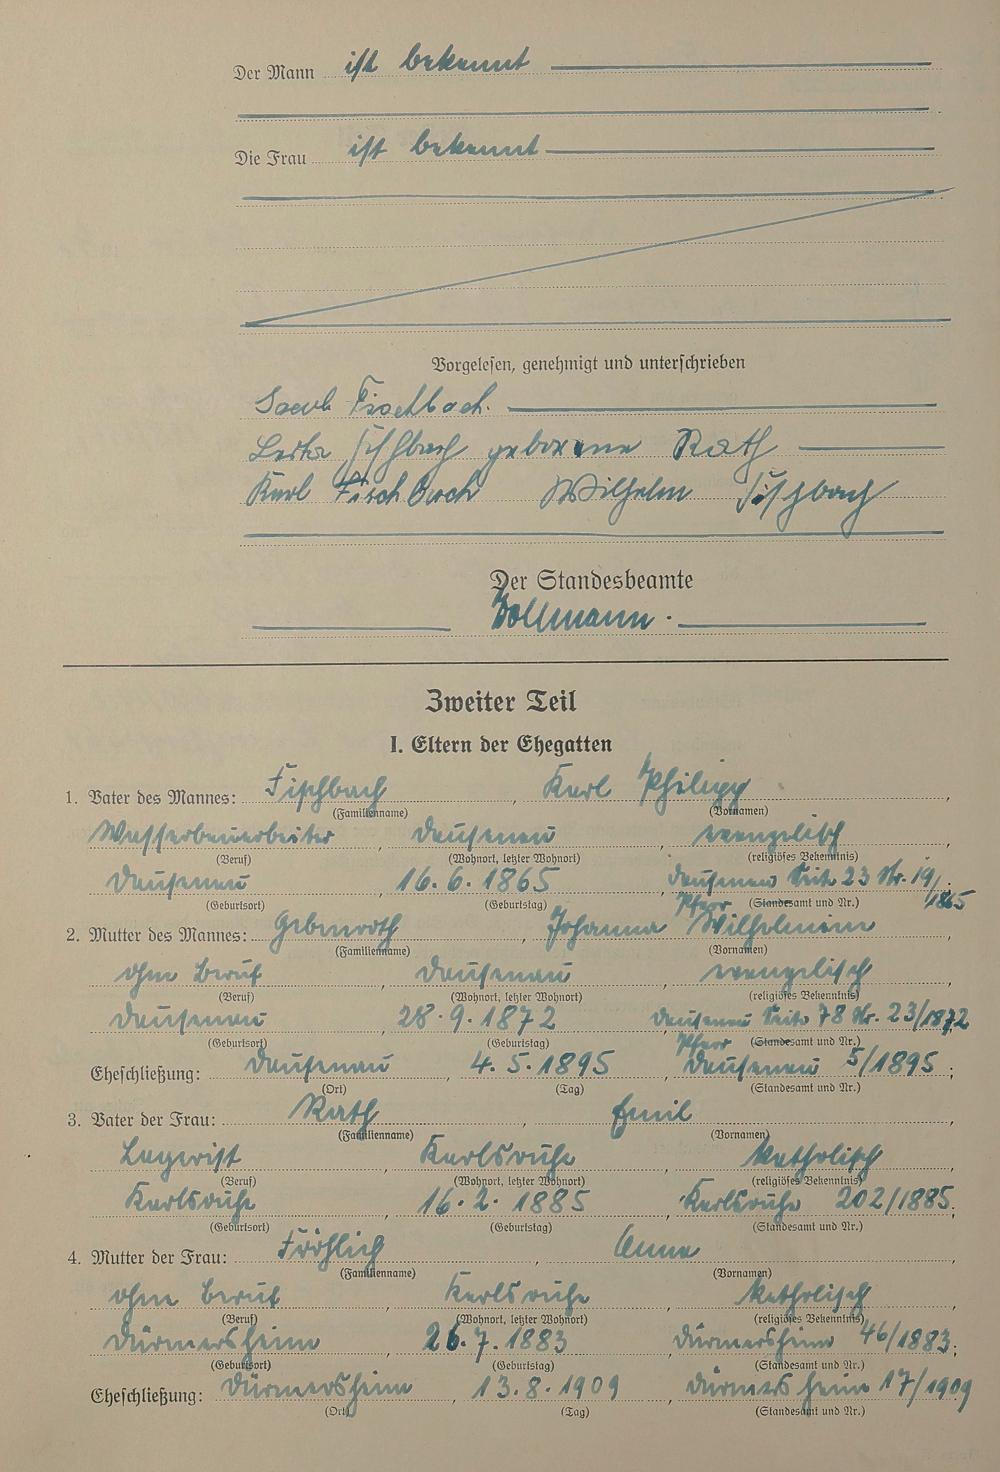 Der Mann ist bekannt
Die Frau ist bekannt
Vorgelesen, genehmigt und unterschrieben
Jacob Fischbach.
Fischbach geborene Rath
Karl Fischbach Wilhelm Fischbach
Der Standesbeamte
Zweiter Teil
I. Eltern der Ehegatten
1. Vater des Mannes: Fischbach, Karl Philipp,
(Familienname) (Vornamen)
Wasserbauarbeiter, Dausenau, evangelisch,
(Beruf) (Wohnort, letzter Wohnort) (religiöses Bekenntnis)
Dausenau, 16.6.1865, Dausenau Seite 23 Nr. 19/1865;
(Geburtsort) (Geburtstag) Pfarr (Standesamt und Nr.)
2. Mutter des Mannes: Gebenroth, Johanna Wilhelmine,
(Familienname) (Vornamen)
ohne Beruf, Dausenau, evangelisch,
(Beruf) (Wohnort, letzter Wohnort) (religiöses Bekenntnis)
Dausenau, 28.9.1872, Dausenau Seite 78 Nr. 23/1872
(Geburtsort) (Geburtstag) Pfarr (Standesamt und Nr.)
Eheschließung: Dausenau, 4.5.1895, Dausenau 5/1895;
(Ort) (Tag) (Standesamt und Nr.)
3. Vater der Frau: Rath, Emil,
(Familienname) (Vornamen)
Lagerist, Karlsruhe, katholisch,
(Beruf) (Wohnort, letzter Wohnort) (religiöses Bekenntnis)
Karlsruhe, 16.2.1885, Karlsruhe 202/1885;
(Geburtsort) (Geburtstag) (Standesamt und Nr.)
4. Mutter der Frau: Fröhlich, Anna,
(Familienname) (Vornamen)
ohne Beruf, Karlsruhe, katholisch,
(Beruf) (Wohnort, letzter Wohnort) (religiöses Bekenntnis)
Dürmersheim, 26.7.1883, Dürmersheim 46/1883;
(Geburtsort) (Geburtstag) (Standesamt und Nr.)
Eheschließung: Dürmersheim, 13.8.1909, Dürmersheim 17/1909
(Ort) (Tag) (Standesamt und Nr.)